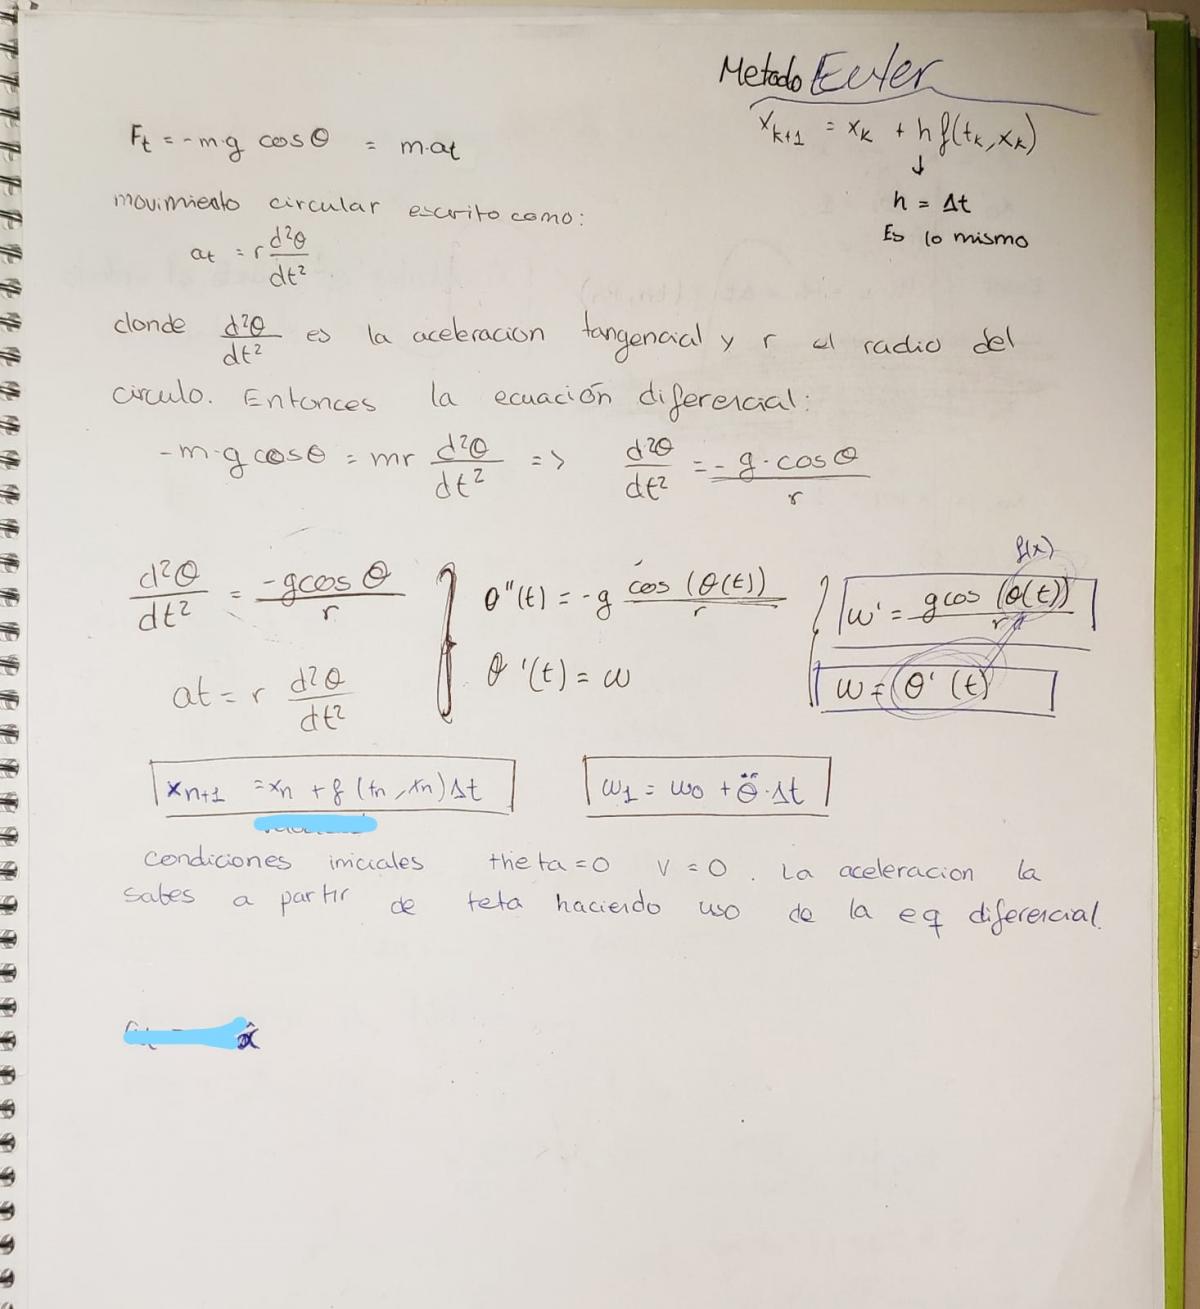 Metodo Euler
x_{k+1} = x_k + h f(t_k, x_k)
↓
h = Δt
Es lo mismo
F_t = -m·g cosθ = m·at
movimiento circular escrito como:
at = r d²θ/dt²
donde d²θ/dt² es la aceleracion tangencial y r el radio del
circulo. Entonces la ecuación diferencial:
-m·g cosθ = mr d²θ/dt² => d²θ/dt² = -g·cosθ/r
f(x)
d²θ/dt² = -gcosθ/r } θ''(t) = -g cos(θ(t))/r } w' = gcos(θ(t))/r
at = r d²θ/dt² θ'(t) = w w = θ'(t)
x_{n+1} = x_n + f(t_n, x_n)Δt w_1 = w_0 + θ̈·Δt
condiciones iniciales theta=0 v=0. La aceleracion la
sabes a partir de teta haciendo uso de la eq diferencial.